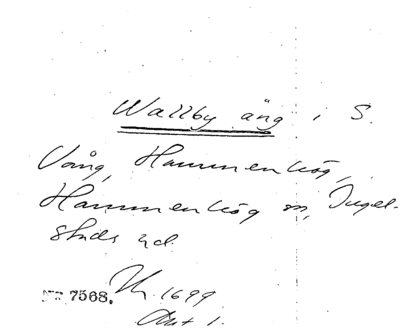 Wallby äng i S.
Vång, Hammenhög,
Hammenhög sn, Ingel-
stads hd.
7568. 1699